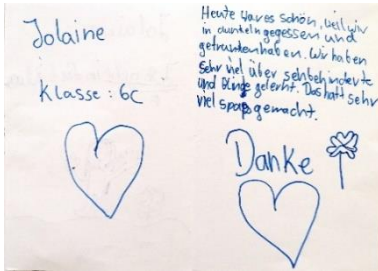 Jolaine
Klasse: 6c
Heute war es schön, weil wir
in dunkeln gegessen und
getrunken haben. Wir haben
sehr viel über sehbehinderte
und Blinde gelernt. Das hatt sehr
viel spaß gemacht.
Danke